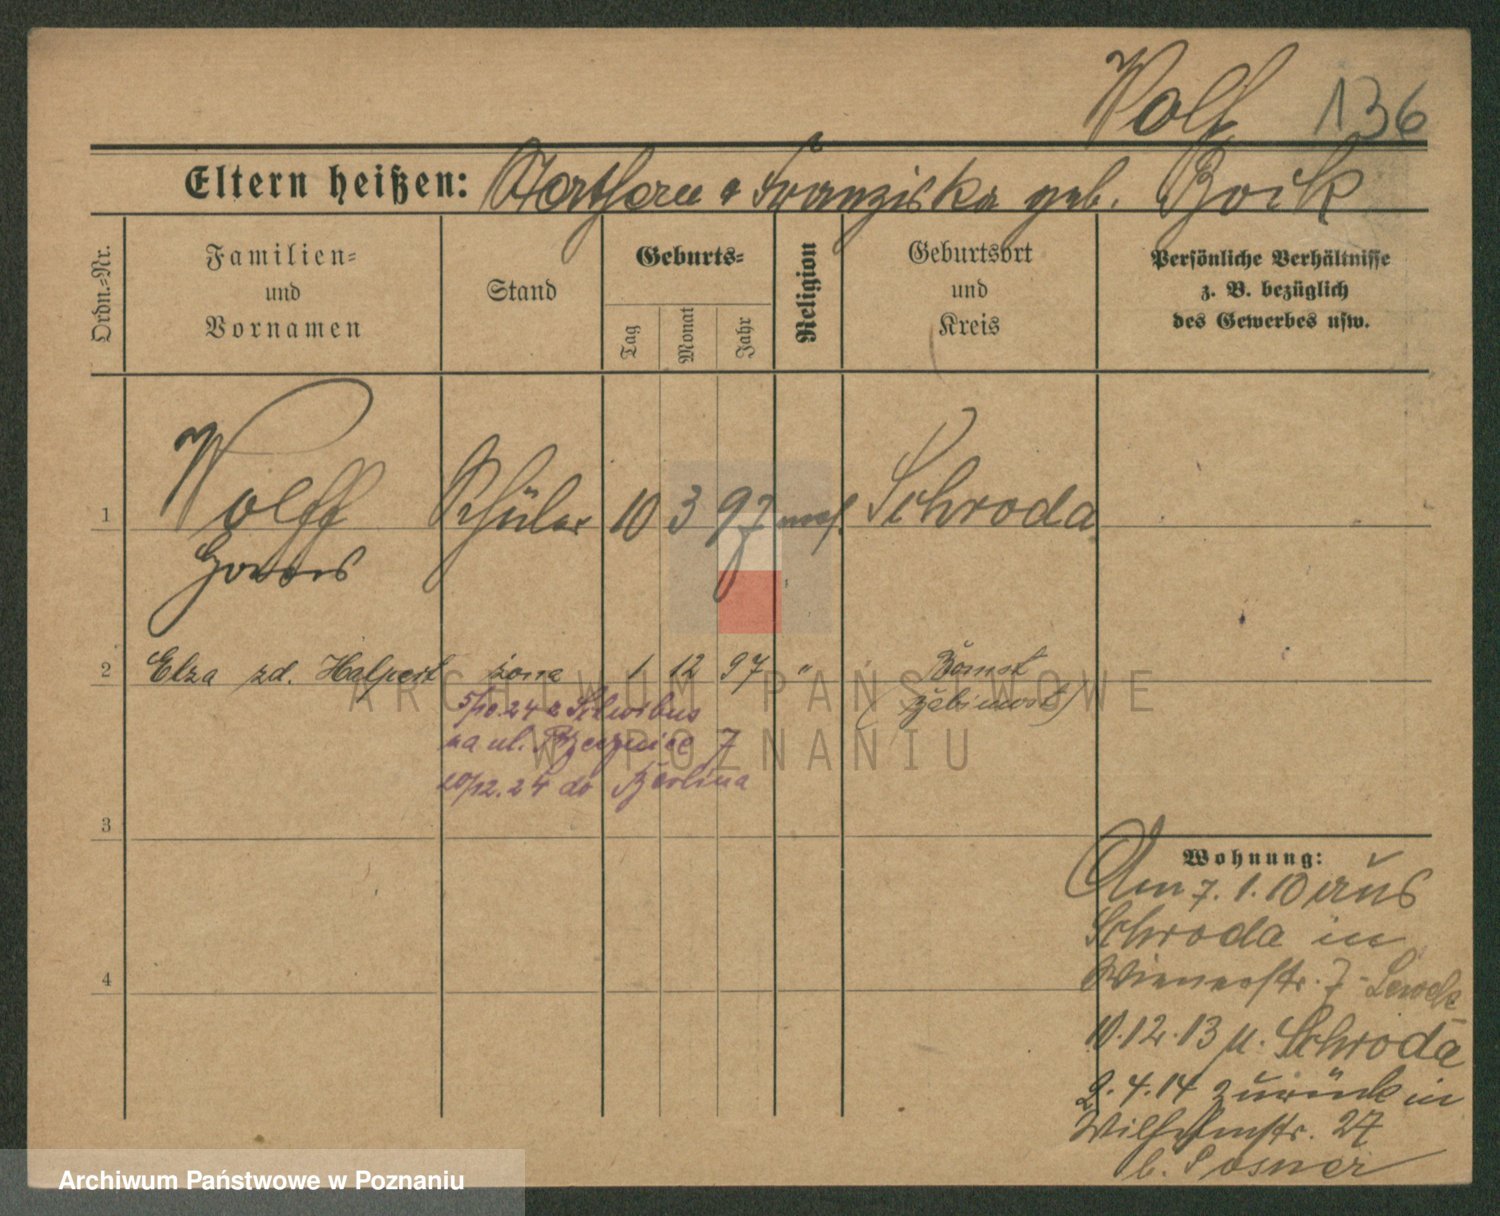 Wolf 136
Eltern heißen: & Franziska geb. Boik
Ordn.-Nr.
Familien-
und
Vornamen
Stand
Geburts-
Tag
Monat
Jahr
Religion
Geburtsort
und
Kreis
Persönliche Verhältnisse
z. B. bezüglich
des Gewerbes usw.
1 Wolff Schüler 10 3 97 mos. Schroda
2 Elza zd. Halpert żona 1 12 97 " Bomst
5/10.24 z Schwibus
na ul. 7
20/12.24 do Berlina
3
4
Wohnung:
Am 7. 1. 10 aus
Schroda in
Wienerstr. 7
10.12.13 n. Schroda
2. 4. 14 zurück in
Wilhelmstr. 27
b. Posner
ARCHIWUM PAŃSTWOWE
W POZNANIU
Archiwum Państwowe w Poznaniu